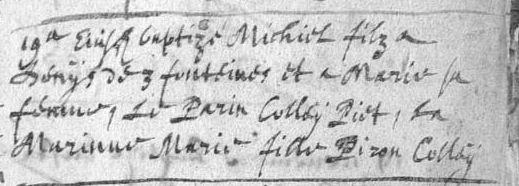 19e baptize Michiel filz a
Denijs de 3 fonteines et a Marie sa
femme, Le Parin Collaÿ Piet, La
Marinne Marie fille Piron Collaÿ